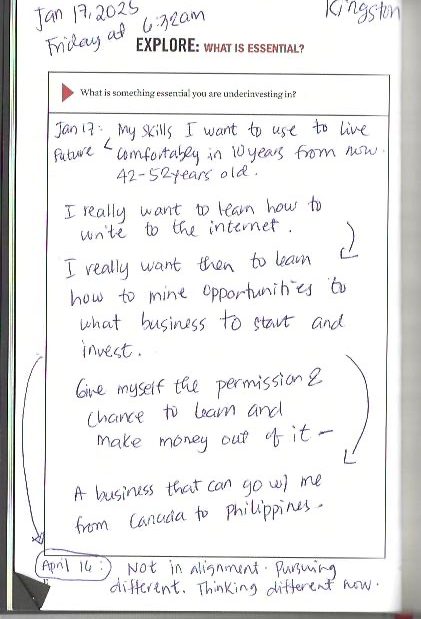 Jan 17, 2025
Kingston
Friday at 6:32am
EXPLORE: WHAT IS ESSENTIAL?
What is something essential you are underinvesting in?
Jan 17: My skills I want to use to live
Future < comfortabley in 10 years from now.
42-52 years old.
I really want to learn how to
write to the internet.
I really want then to learn
how to mine opportunities to
what business to start and
invest.
Give myself the permission &
chance to learn and
make money out of it -
A business that can go w/ me
from Canada to Philippines.
April 16: Not in alignment. Pursuing
different. Thinking different now.